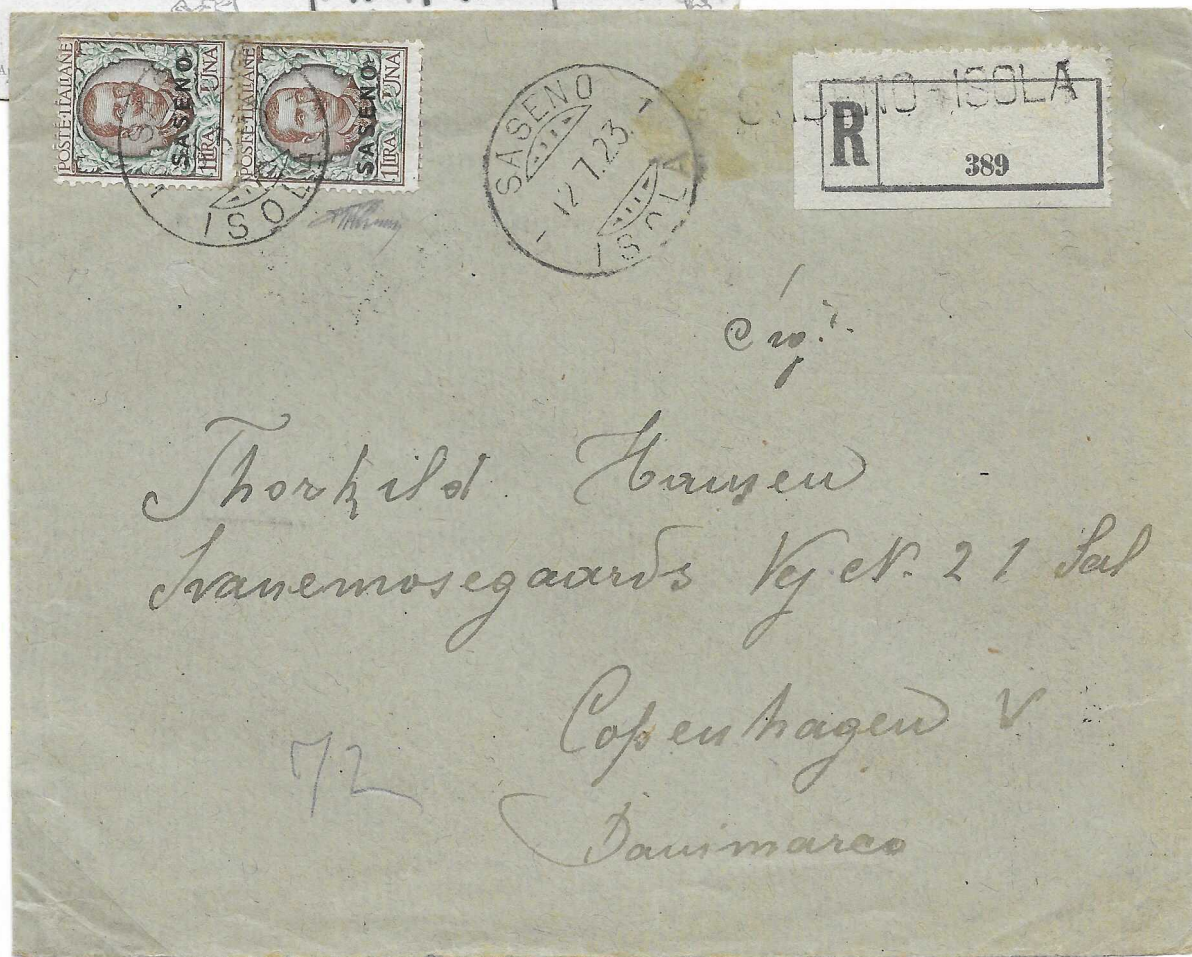 POSTE·ITALIANE
1 LIRA UNA
SASENO
POSTE·ITALIANE
1 LIRA UNA
SASENO
ISOLA
1
SASENO 1
12.7.23
1 ISOLA
SASENO-ISOLA
R
389
Sigr.
Thorkild Hansen
Svanemosegaards Vej N. 2 1 Sal
Copenhagen V
Danimarca
72